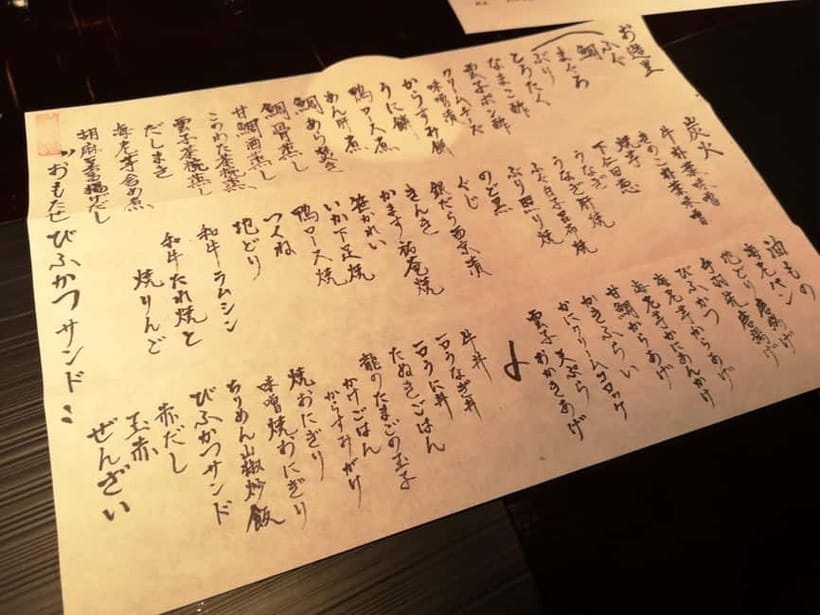 お造里
ふぐ
鯛
まぐろ
ぶり
とろたく
なまこ酢
雲子ポン酢
クリームチーズ
味噌漬
からすみ餅
うに餅
鴨ロース煮
あん肝煮
鯛あら炊き
鯛骨蒸し
甘鯛酒蒸し
このわた茶碗蒸し
雲子茶碗蒸し
だしまき
海老芋含め煮
胡麻豆腐揚げだし
おもたせびふかつサンド
炭火
牛朴葉味噌
きのこ朴葉味噌
焼芋
下仁田葱
うなぎ
うなぎ肝焼
ふぐ白子昆布焼
ぶり照り焼
のど黒
ぐじ
銀だら西京漬
きんき
かます祐庵焼
笹かれい
いか下足焼
鴨ロース焼
つくね
地どり
和牛ラムシン
和牛たれ焼と
焼りんご
油もの
海老パン
地どり唐揚げ
手羽先唐揚げ
びふかつ
海老芋からあげ
海老芋かにあんかけ
甘鯛からあげ
かきふらい
かにクリームコロッケ
天ぷら
雲子おかきあげ
〆
牛丼
一口うなぎ丼
一口うに丼
たぬきごはん
龍のたまごの玉子
かけごはん
からすみがけ
焼おにぎり
味噌焼おにぎり
ちりめん山椒炒飯
びふかつサンド
赤だし
玉赤
ぜんざい